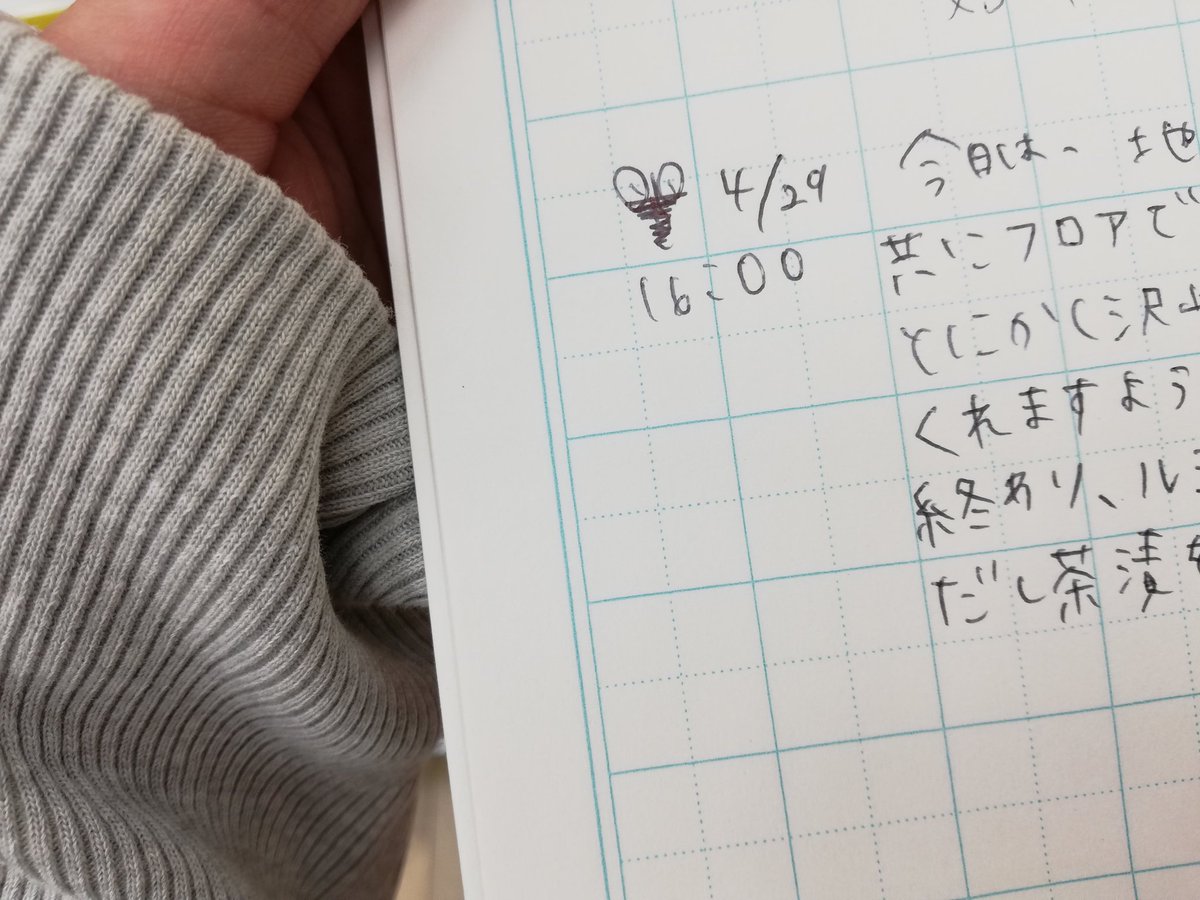 4/29
16:00
今日は、土地
共にフロアで
とにかく沢山
くれますよう
終あり、ル
だし茶漬